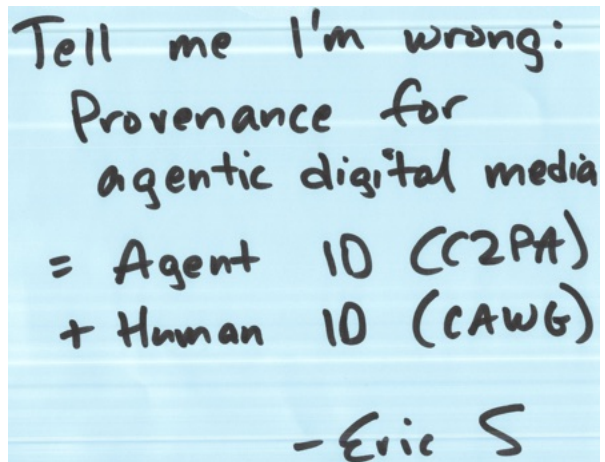 Tell me I'm wrong:
Provenance for
agentic digital media
= Agent ID (C2PA)
+ Human ID (CAWG)
- Eric S